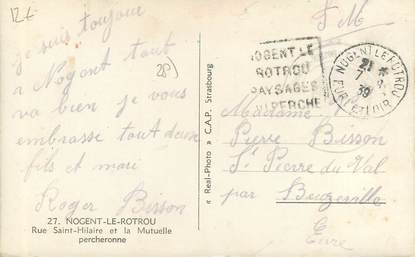 12 f
je suis toujours
a Nogent tout
va bien je vous
embrasse tout deux
fils et mari
Roger Bisson
28
27. NOGENT-LE-ROTROU
Rue Saint-Hilaire et la Mutuelle
percheronne
« Real-Photo » C.A.P. Strasbourg
F M
NOGENT LE
ROTROU
PAYSAGES
DU PERCHE
NOGENT-LE-ROTROU
21 *
7-9
39
EURE ET LOIR
Madame
Pierre Bisson
St Pierre du Val
par Beuzeville
Eure